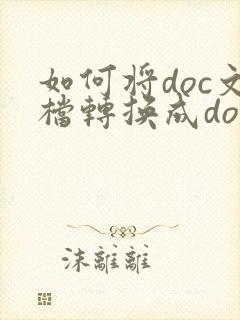 如何将doc文
檔轉換成do
沫離離